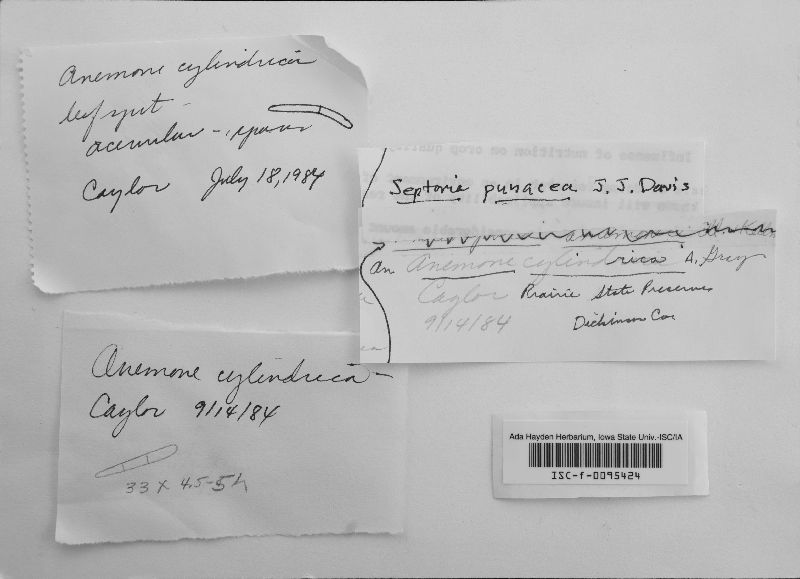 Anemone cylindrica
leaf spot -
acervular - spores
Caylor July 18, 1984
Septoria punacea J. J. Davis
on Anemone cylindrica A. Gray
Caylor Prairie State Preserve
9/14/84 Dickinson Co.
Anemone cylindrica -
Caylor 9/14/84
33 x 4.5-5
Ada Hayden Herbarium, Iowa State Univ.-ISC/IA
ISC-f-0095424